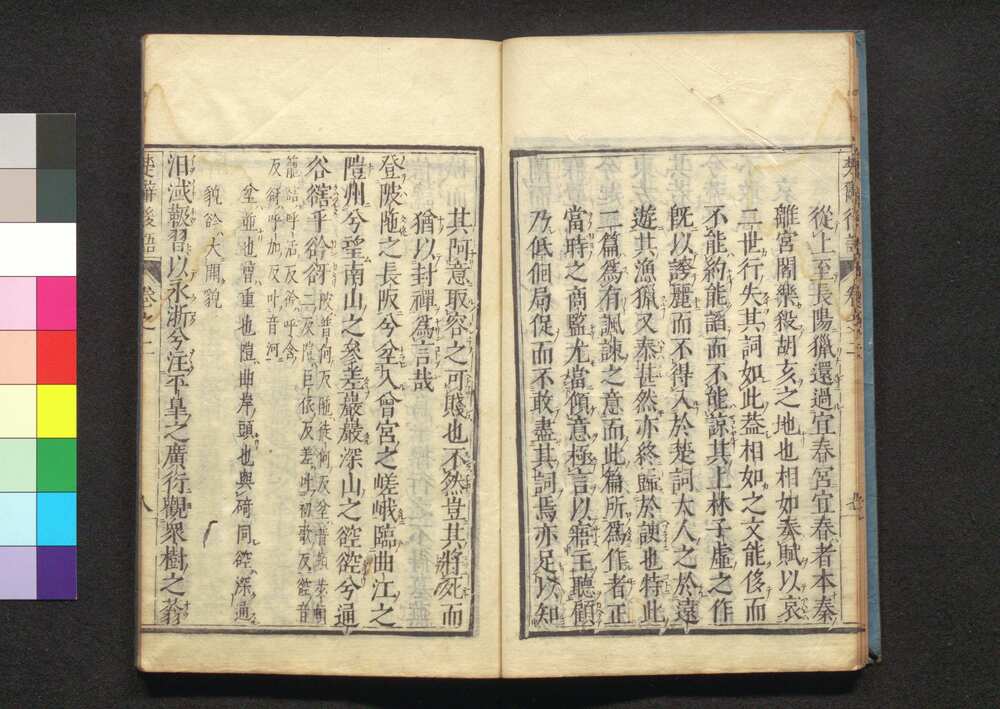 楚辭後語 卷之二
從上至長陽獵還過宜春宮宜春者本秦
離宮閻樂殺胡亥之地也相如奏賦以哀
二世行失其詞如此蓋相如之文能侈而
不能約能諂而不能諒其上林子虛之作
旣以誇麗而不得入於楚詞大人之於遠
遊其漁獵又泰甚然亦終歸於諛也特此
二篇爲有諷諫之意而此篇所爲作者正
當時之商監尤當傾意極言以寤主聽顧
乃低佪局促而不敢盡其詞焉亦足以知
其阿意取容之可賤也不然豈其將死而
猶以封禪爲言哉
登陂陁之長阪兮坌入曾宮之嵯峨臨曲江之
隑州兮望南山之參差巖巖深山之谾谾兮通
谷豁乎谽谺
陂普何反陁徒何反坌普頓
二反隑巨依反差叶初歌反谾音
籠豁呼活反谽呼含
反谺呼加反叶音河
坌並也曾重也隑曲岸頭也與碕同谾深通
貌谽大開貌
汨淢靸習以永逝兮注平皋之廣衍觀衆樹之蓊
楚辭後語 卷之二 八